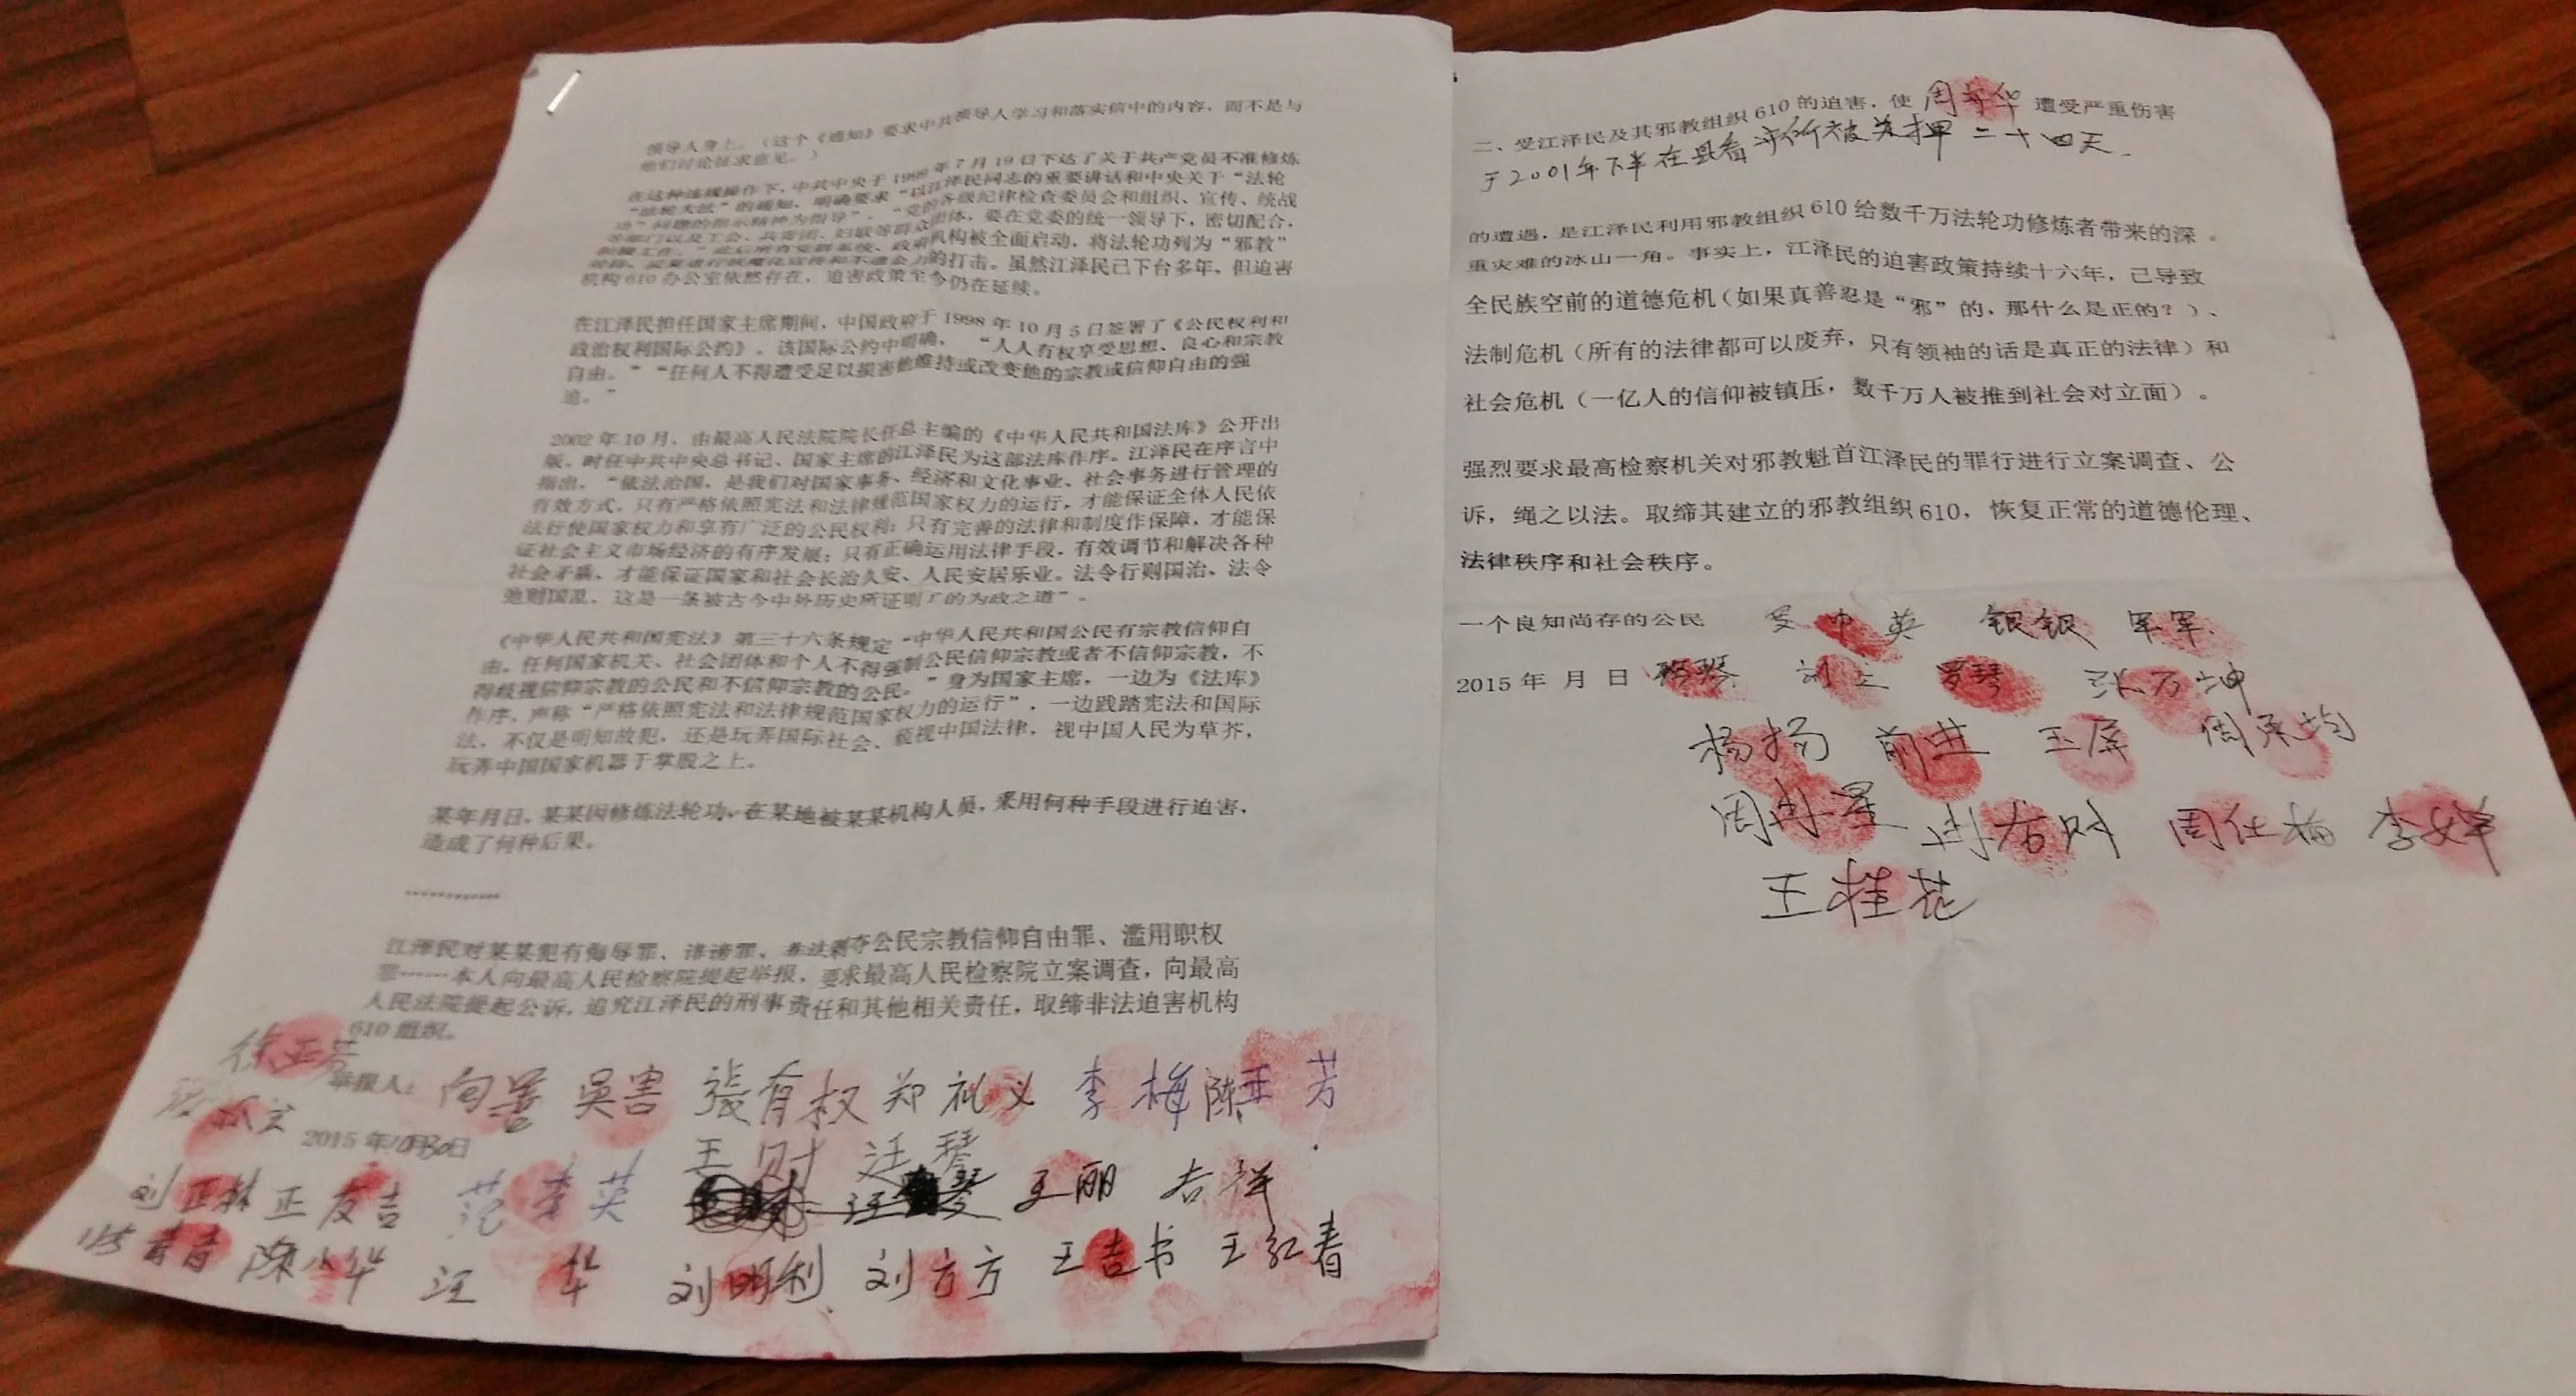 领导人身上。（这个《通知》要求中共领导人学习和落实信中的内容，而不是与
他们讨论征求意见。）
在这种违规操作下，中共中央于1999年7月19日下达了关于共产党员不准修炼
“法轮大法”的通知，明确要求“以江泽民同志的重要讲话和中央关于“法轮
功”问题的指示精神为指导”，“党的各级纪律检查委员会和组织、宣传、统战
等部门以及工会、共青团、妇联等群众团体，要在党委的统一领导下，密切配合，
机构被全面启动，将法轮功列为“邪教”
的打击。虽然江泽民已下台多年，但迫害
机构610办公室依然存在，迫害政策至今仍在延续。
在江泽民担任国家主席期间，中国政府于1998年10月5日签署了《公民权利和
政治权利国际公约》。该国际公约中明确，“人人有权享受思想、良心和宗教
自由。”“任何人不得遭受足以损害他维持或改变他的宗教或信仰自由的强
迫。”
2002年10月，由最高人民法院院长任总主编的《中华人民共和国法库》公开出
版。时任中共中央总书记、国家主席的江泽民为这部法库作序。江泽民在序言中
指出，“依法治国，是我们对国家事务、经济和文化事业、社会事务进行管理的
有效方式。只有严格依照宪法和法律规范国家权力的运行，才能保证全体人民依
法行使国家权力和享有广泛的公民权利；只有完善的法律和制度作保障，才能保
证社会主义市场经济的有序发展；只有正确运用法律手段，有效调节和解决各种
社会矛盾，才能保证国家和社会长治久安、人民安居乐业。法令行则国治、法令
弛则国乱，这是一条被古今中外历史所证明了的为政之道”。
《中华人民共和国宪法》第三十六条规定“中华人民共和国公民有宗教信仰自
由。任何国家机关、社会团体和个人不得强制公民信仰宗教或者不信仰宗教，不
得歧视信仰宗教的公民和不信仰宗教的公民。”身为国家主席，一边为《法库》
作序，声称“严格依照宪法和法律规范国家权力的运行”，一边践踏宪法和国际
法，不仅是明知故犯，还是玩弄国际社会、藐视中国法律，视中国人民为草芥，
玩弄中国国家机器于掌股之上。
某年月日，某某因修炼法轮功，在某地被某某机构人员，采用何种手段进行迫害，
造成了何种后果。
…………
江泽民对某某犯有侮辱罪、诽谤罪、非法剥夺公民宗教信仰自由罪、滥用职权
罪……本人向最高人民检察院提起举报，要求最高人民检察院立案调查，向最高
人民法院提起公诉，追究江泽民的刑事责任和其他相关责任，取缔非法迫害机构
610组织。
徐正芳
举报人：向善 吴害 張有权 郑礼义 李梅 陈亚芳
2015年10月30日
王财 汪琴
刘正林 正友吉 范李英 王丽 吉祥
青青 陈小华 汪华 刘明利 刘方方 王吉书 王红春
二、受江泽民及其邪教组织610的迫害，使 周华 遭受严重伤害
于2001年下半在县看守所被关押二十四天.
的遭遇，是江泽民利用邪教组织610给数千万法轮功修炼者带来的深
重灾难的冰山一角。事实上，江泽民的迫害政策持续十六年，已导致
全民族空前的道德危机（如果真善忍是“邪”的，那什么是正的？）、
法制危机（所有的法律都可以废弃，只有领袖的话是真正的法律）和
社会危机（一亿人的信仰被镇压，数千万人被推到社会对立面）。
强烈要求最高检察机关对邪教魁首江泽民的罪行进行立案调查、公
诉，绳之以法。取缔其建立的邪教组织610，恢复正常的道德伦理、
法律秩序和社会秩序。
一个良知尚存的公民 英 银银 军军
2015年 月 日 罗琴 张万坤
杨扬 前进 玉屏 周
周 周仕梅 李
王桂花